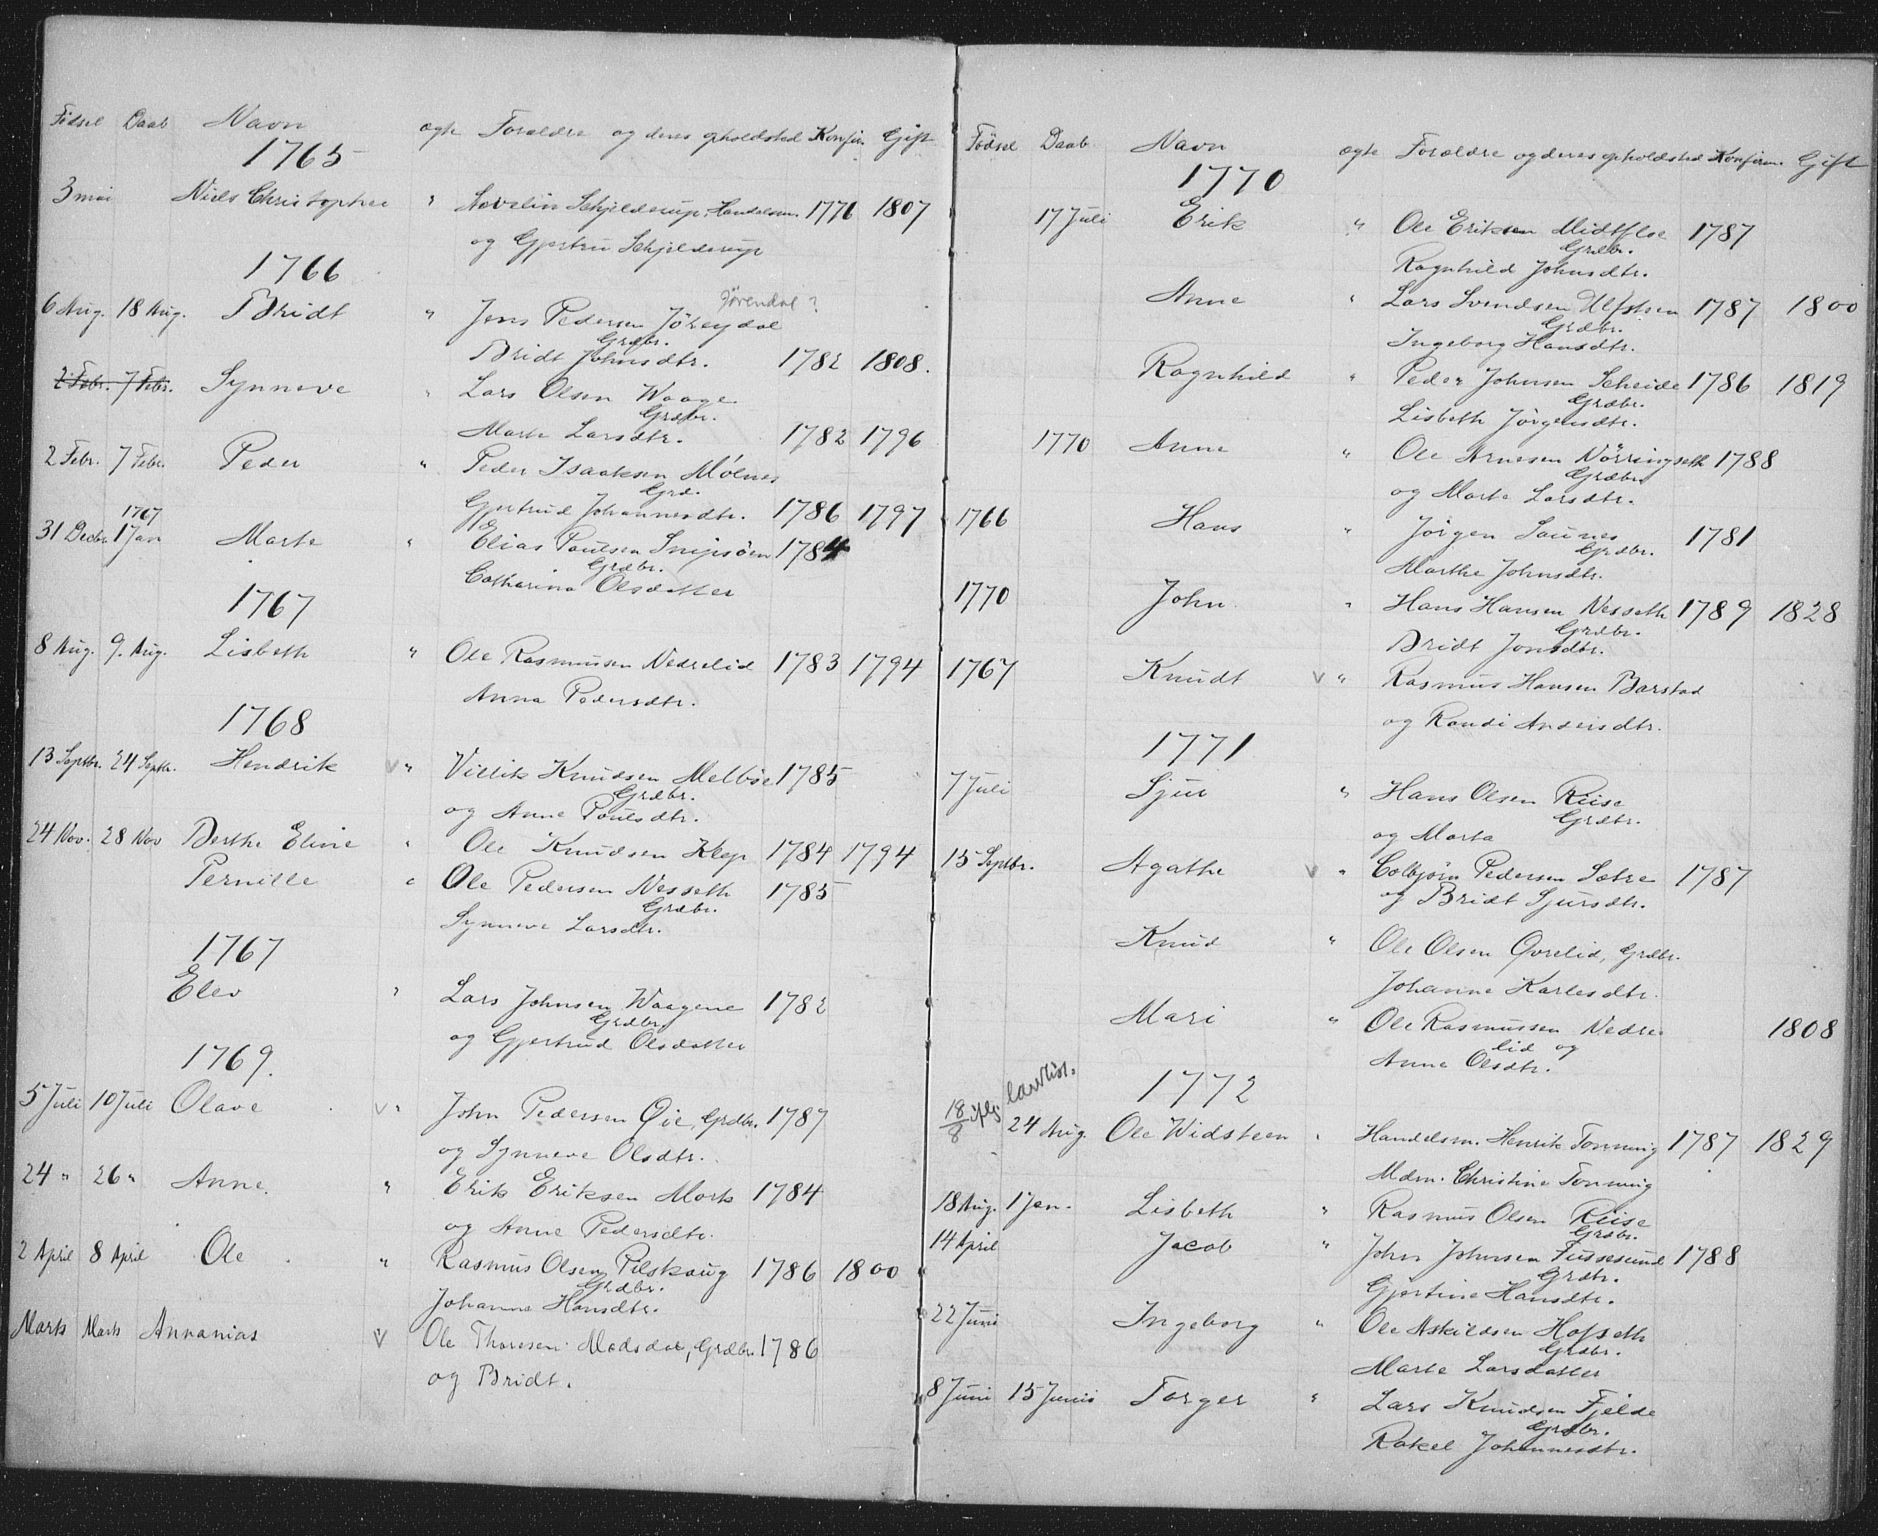 Fødsel Daab Navn ægte Forældre og deres opholdsted Konfir. Gift
1765
3 mai Niels Christopher " Schjelderup, Handelsm. 1776 1807
og Gjertru Schjelderup
1766
Jørendal ?
6 Aug. 18 Aug. Bridt " Jens Pedersen Jöreydal
Grdbr.
Bridt Johnsdtr. 1782 1808.
2 Febr. 7 Febr. Synneve " Lars Olsen Waage
Grdbr.
Marte Larsdtr. 1782 1796
2 Febr. 7 Febr. Peder " Peder Isaaksen Mølnes
Grd.
Gjertrud Johannesdtr. 1786 1797
1767
31 Decbr. 1 Jan Marte " Elias Poulsen 1784
Grdbr.
Catharina Olsdatter
1767
8 Aug. 9. Aug. Lisbeth " Ole Rasmussen Nedrelid 1783 1794
Anna Pedersdtr.
1768
13 Septbr. 24 Septbr. Hendrik v " Villik Knudsen Melbøe 1785
Grdbr.
og Anne Poulsdtr.
24 Nov. 28 Nov Berthe Eline " Ole Knudsen Klep 1784 1794
Pernille " Ole Pedersen Nesseth 1785
Grdbr.
Synneve Larsdtr.
1767
Elev " Lars Johnsen Waagene 1782
Grdbr.
og Gjertrud Olsdatter
1769.
5 Juli 10 Juli Olave v " John Pedersen Øie, Grdbr. 1787
og Synneve Olsdtr.
24 " 26 " Anne. " Erik Eriksen Mork 1784
og Anne Pedersdtr.
2 April 8 April Ole " Rasmus Olsen Pilskoug 1786 1800
Grdbr.
Johanne Hansdtr.
Marts Marts Annanias v Ole Thoresen Modsdal, Grdbr. 1786
og Bridt.
Fødsel Daab Navn ægte Forældre og deres opholdsted Konfirm. Gift
1770
17 Juli Erik " Ole Eriksen Midtflse 1787
Grdbr.
Ragnhild Johnsdtr.
Anne " Lars Svendsen Ulfsten 1787 1800
Grdbr.
Ingeborg Hansdtr.
Ragnhild " Peder Johnsen Scheide 1786 1819
Grdbr.
Lisbeth Jørgensdtr.
1770 Anne " Ole Arnesen Nörringseth 1788
Grdbr.
og Marte Larsdtr.
1766 Hans " Jørgen Saunes 1781
Grdbr.
Marthe Johnsdtr.
1770 John " Hans Hansen Nesseth 1789 1828
Grdbr.
Bridt Jonsdtr.
1767 Knudt v " Rasmus Hansen Barstad
og Randi Andersdtr.
1771
7 Juli Sjur " Hans Olsen Riise
Grdbr.
og Marta
15 Septbr. Agathe v " Colbjørn Pedersen Sætre 1787
og Bridt Sjursdtr.
Knud " Ole Olsen Øvrelid, Grdbr.
Johanne Karlesdtr.
Mari " Ole Rasmussen Nedre- 1808
lid og
Anne Olsdtr.
1772
18/8 iflg.
24 Aug. Ole Widsteen " Handelsm. Henrik Tonning 1787 1829
Mdm. Christine Tonning
18 Aug. 1 Jan. Lisbeth " Rasmus Olsen Riise
Grdbr.
14 April Jacob " John Johnsen 1788
Grdbr.
Gjertine Hansdtr.
22 Juni Ingeborg " Ole Askildsen Hofseth
Grdbr.
Marte Larsdatter
8 Juni 15 Junii Torger " Lars Knudsen Fjelde
Grdbr.
Rakel Johannesdtr.